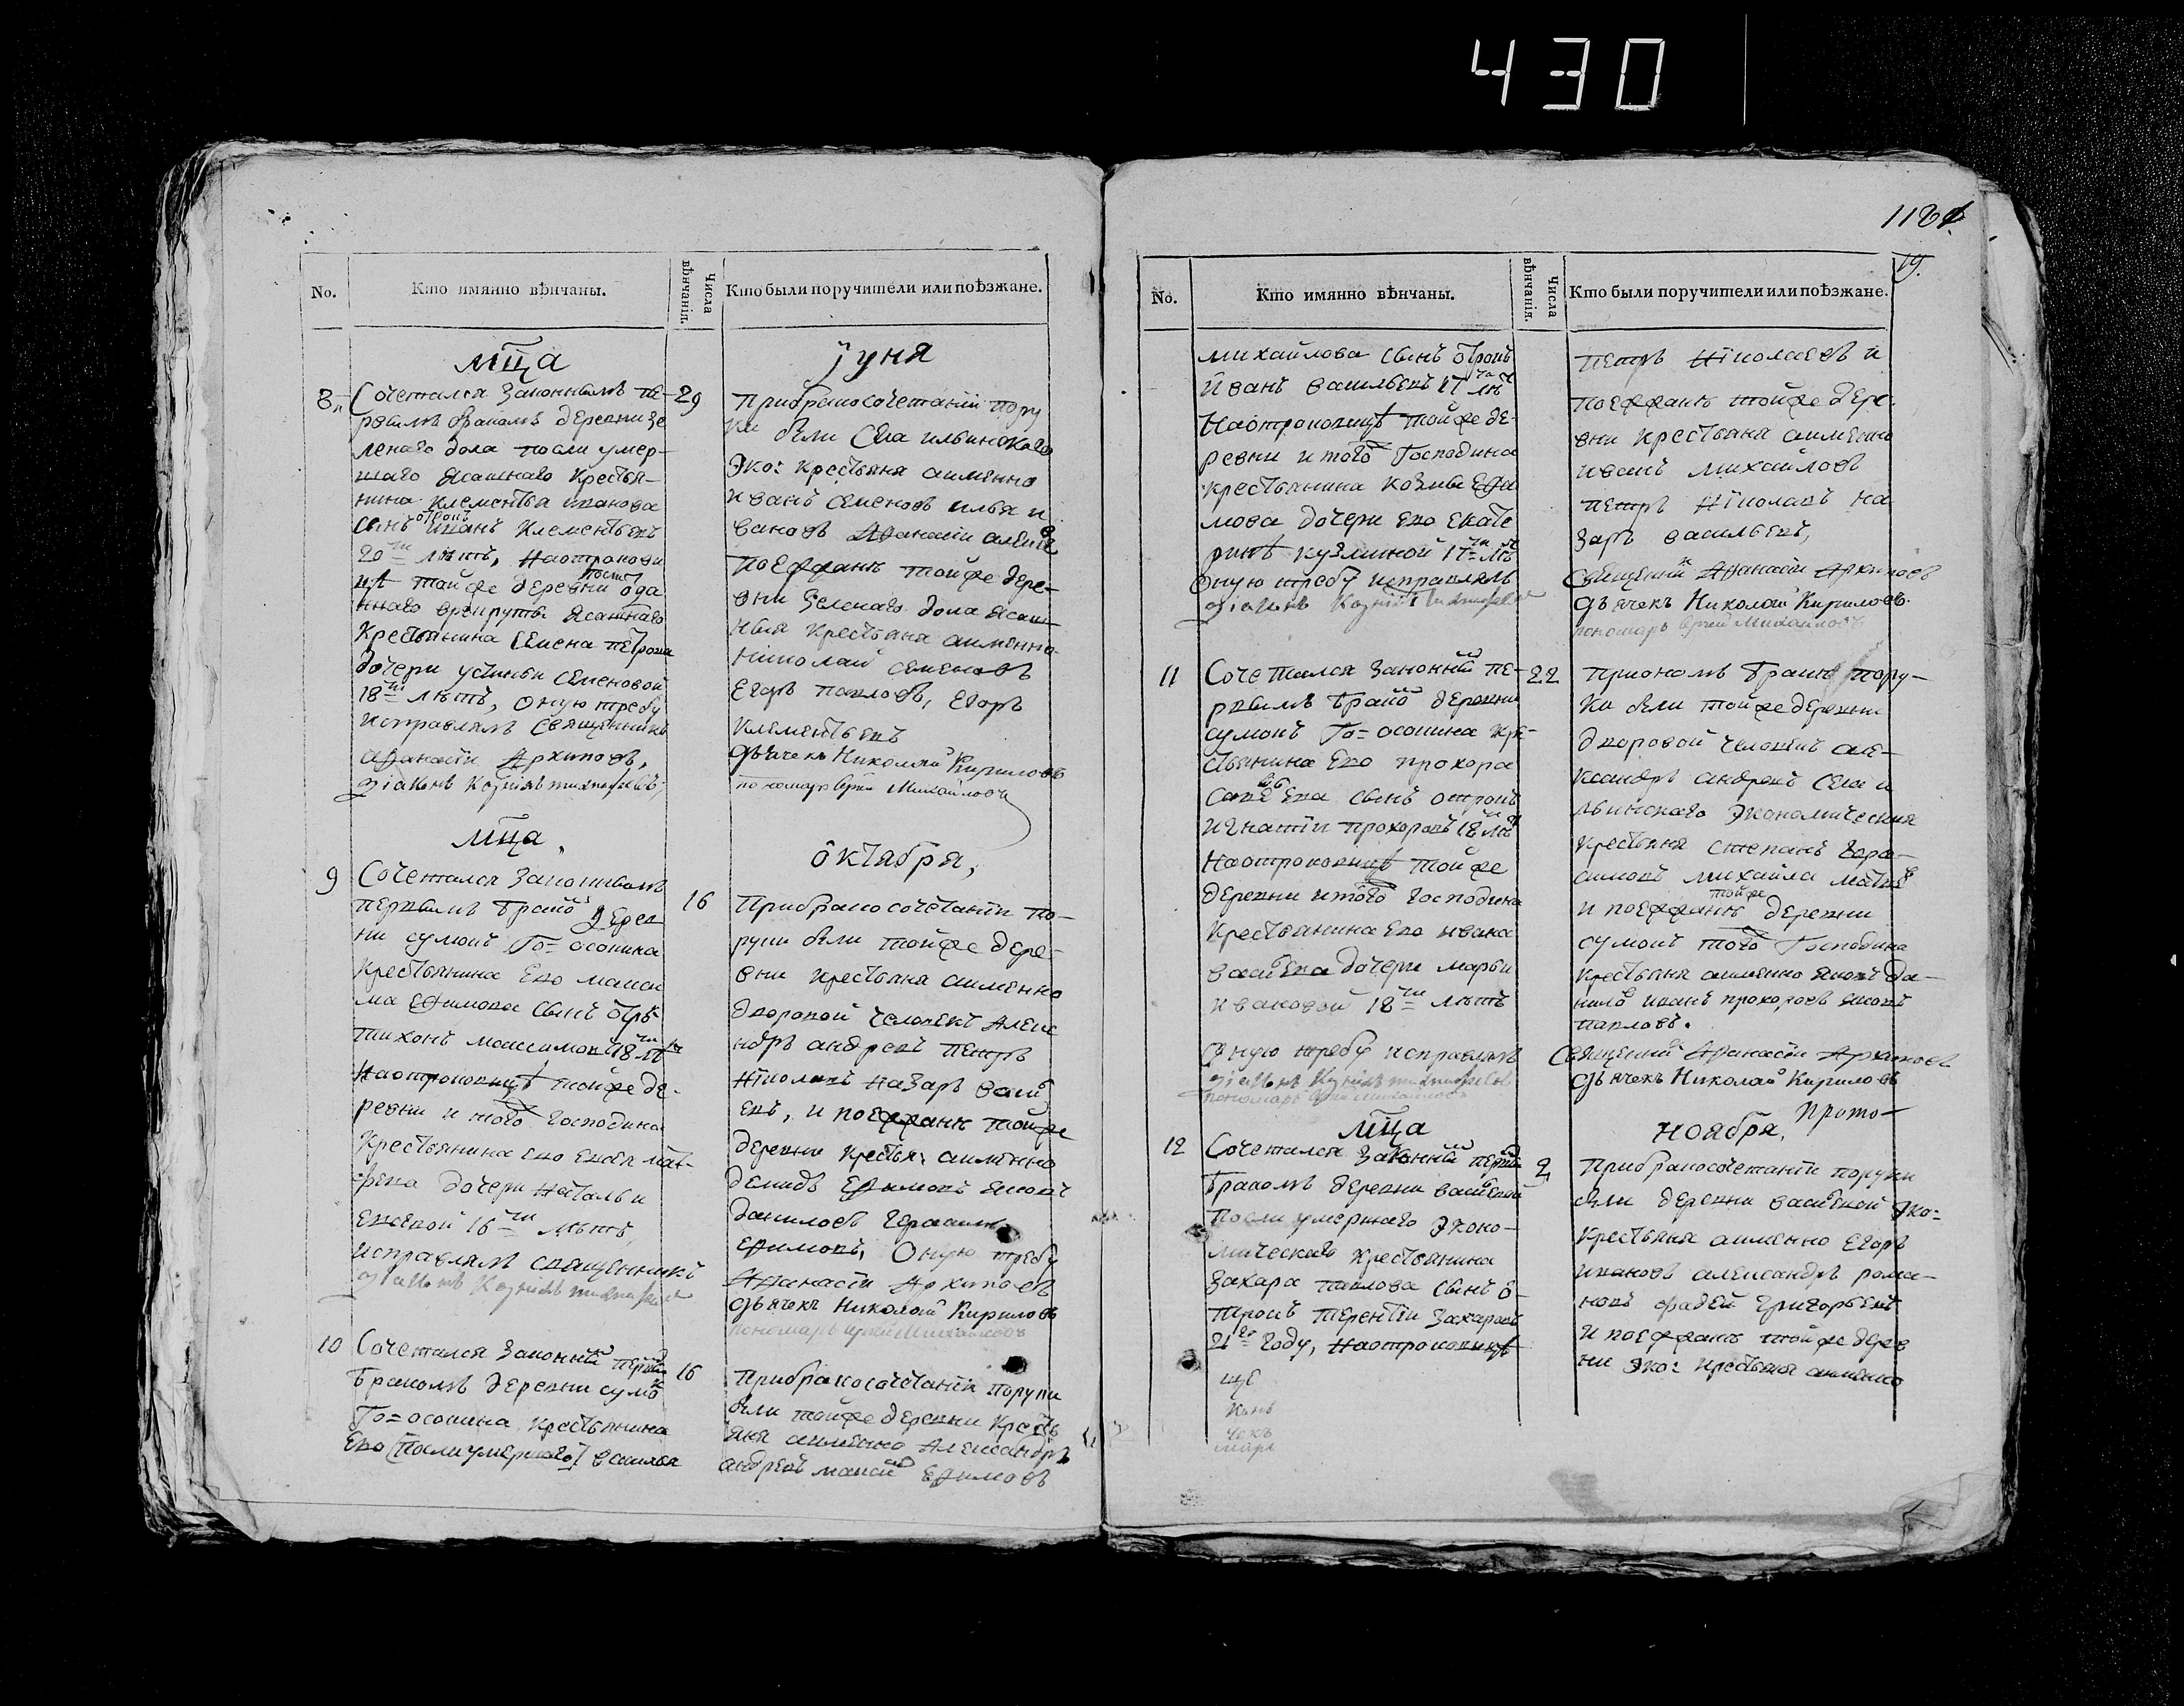 430
No.
Кто имянно вѣнчаны.
Числа вѣнчанія.
Кто были поручители или поѣзжане.
мца
іуня
8
Сочетался Законнымъ пе-
рвымъ бракомъ деревни Зе
ленаго дола посли умер-
шаго Ясашнаго Крестья-
нина Клементья иванова
сынъ отрокъ иванъ Клементьевъ
20ти лѣтъ, на отрокови
цѣ тойже деревни
Ясашнаго
Крестьянина Семена петрова
дочери устиньи Семеновой
18ти лѣтъ, оную требу
исправлялъ Священникъ
афанасіи Архиповъ,
діаконъ
29
При бракосочетаніи пору
ки были Села ильинскаго
Эко: крестьяня аимѣнно
иванъ Семеновъ илья и
вановъ Афанасіи
поезжанѣ тойже дере-
вни Зеленаго дола Ясаш
ныя крестьяня аименно
николай семеновъ
Егоръ павловъ, Егоръ
клементьевъ
дьячекъ Николай Кириловъ
пономарь Михайловъ
мца
октября,
9
Сочетался Законнымъ
первымъ бракомъ дерев
ни сумокъ Го= осокина
Крестьянина Ево макси
ма Ефимова сынъ
тихонъ максимовъ 18ти
На отроковицѣ тойже де-
ревни и того господина
Крестьянина Ево
дочери Натальи
16ти лѣтъ,
исправлялъ священникъ
діаконъ
16
При бракосочетаніи по-
руки были тойже дере-
вни крестьяня аименно
дворовой человекъ Алекса
ндръ андревъ петръ
Николаевъ Назаръ васил
евъ, и поезжанѣ тойже
деревни крестья: аименно
демидъ Ефимовъ яковъ
даниловъ
Ефимовъ, Оную требу
Афанасіи Архиповъ
дьячекъ Николай Кириловъ
пономарь Михайловъ
10
Сочетался Законный первый
бракомъ деревни сумокъ
Го= осокина крестьянина
Ево [посли умершаго] василья
16
При бракосочетаніи поруки
были тойже деревни Кресть
яня аименно Александръ
андревъ максимъ Ефимовъ
No.
Кто имянно вѣнчаны.
Числа вѣнчанія.
Кто были поручители или поѣзжане.
михайлова сынъ отрокъ
Иванъ васильевъ 17ти лѣтъ
На отроковицѣ тойже де-
ревни и того Господина
крестьянина козмы Ефи
мова дочери Ево Екате
ринѣ кузминой 17ти лѣтъ
Оную требу исправлялъ
діаконъ
петръ Николаевъ и
поезжанѣ тойже дере-
вни крестьяня аименно
иванъ михайловъ
петръ Николаевъ на
заръ васильевъ,
Священникъ Афанасіи Архиповъ
дьячекъ Николай Кириловъ
пономарь Михайловъ
11
Сочетался Законный пе-
рвымъ бракомъ деревни
сумокъ Го= осокина кре-
стьянина Ево прохора
сынъ отрокъ
игнатіи прохоровъ 18ти лѣтъ
На отроковицѣ тойже
деревни и того господина
Крестьянина Ево ивана
дочери марьи
ивановой 18ти лѣтъ
Оную требу исправлялъ
діаконъ
пономарь Михайловъ
22
При ономъ бракѣ пору-
ки были тойже деревни
дворовой человѣкъ але-
ксандръ андревъ Села и
льинскаго Экономическия
крестьяня степанъ гера-
симовъ михайла
и поезжанѣ тойже деревни
сумокъ того Господина
крестьяня аименно яковъ да-
ниловъ иванъ прохоровъ яковъ
павловъ.
Священникъ Афанасіи Архиповъ
дьячекъ Николай Кириловъ
Прото-
мца
ноября,
12
Сочетался Законный первый
бракомъ деревни
посли умершаго Эконо-
мическаго крестьянина
Захара павлова сынъ о-
трокъ терентіи Захаровъ
21го году, На отроковицѣ
2
При бракосочетаніи поруки
были деревни Эко=
крестьяня аименно Егоръ
ивановъ александръ рома-
новъ фадей григорьевъ
и поезжанѣ тойже дерев
ни Эко: крестьяня аименно